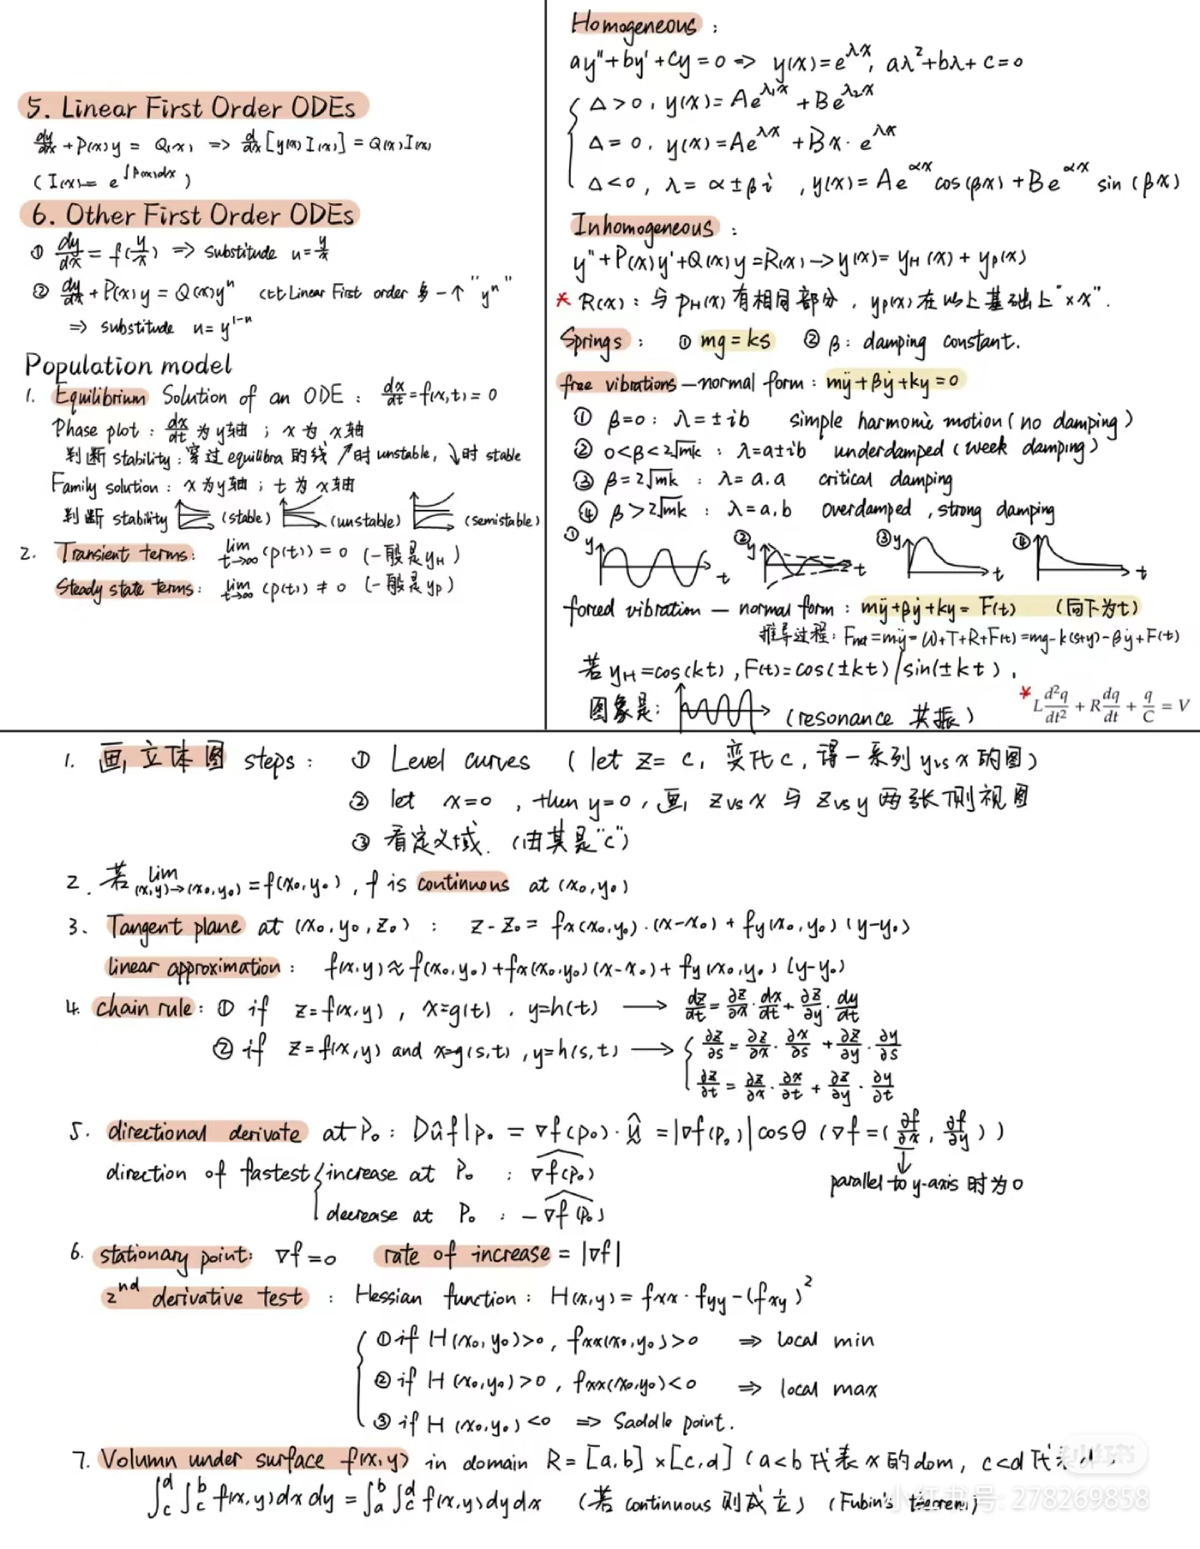 5. Linear First Order ODEs
dy/dx + P(x)y = Q(x) => d/dx [y(x) I(x)] = Q(x) I(x)
( I(x) = e^∫P(x)dx )
6. Other First Order ODEs
① dy/dx = f(y/x) => substitude u = y/x
② dy/dx + P(x)y = Q(x)y^n (比Linear First order 多一个 "y^n"
=> substitude u = y^1-n
Population model
1. Equilibrium Solution of an ODE : dx/dt = f(x,t) = 0
Phase plot : dx/dt 为 y轴 ; x 为 x轴
判断 stability : 穿过 equilibra 的线 ↗时 unstable, ↘时 stable
Family solution : x 为 y轴 ; t 为 x轴
判断 stability (stable) (unstable) (semistable)
2. Transient terms: lim t→∞ (p(t)) = 0 (一般是 yH)
Steady state terms: lim t→∞ (p(t)) ≠ 0 (一般是 yp)
Homogeneous :
ay" + by' + cy = 0 => y(x) = e^λx, aλ² + bλ + c = 0
Δ > 0, y(x) = Ae^λ1x + Be^λ2x
Δ = 0, y(x) = Ae^λx + Bx · e^λx
Δ < 0, λ = α ± βi , y(x) = Ae^αx cos(βx) + Be^αx sin(βx)
Inhomogeneous :
y" + P(x)y' + Q(x)y = R(x) → y(x) = yH(x) + yp(x)
* R(x) : 与 PH(x) 有相同部分, yp(x) 在以上基础上 "×x".
Springs : ① mg = ks ② β : damping constant.
free vibrations — normal form : mÿ + βẏ + ky = 0
① β = 0 : λ = ± ib simple harmonic motion (no damping)
② 0 < β < 2√mk : λ = a ± ib underdamped (week damping)
③ β = 2√mk : λ = a, a critical damping
④ β > 2√mk : λ = a, b overdamped , strong damping
① y t ② y t ③ y t ④ t
forced vibration — normal form : mÿ + βẏ + ky = F(t) (向下为 t)
推导过程: Fnet = mÿ = W + T + R + F(t) = mg - k(s+y) - βẏ + F(t)
若 yH = cos(kt) , F(t) = cos(±kt) / sin(±kt) ,
图象是: (resonance 共振)
* L d²q/dt² + R dq/dt + q/C = V
1. 画立体图 steps : ① Level curves ( let z = c, 变化 c, 得一系列 y vs x 的图)
② let x = 0 , then y = 0 , 画 z vs x 与 z vs y 两张侧视图
③ 看定义域. (尤其是 "c")
2. 若 lim (x,y)→(x₀,y₀) = f(x₀,y₀) , f is continuous at (x₀,y₀)
3. Tangent plane at (x₀, y₀, z₀) : z - z₀ = fx(x₀,y₀) · (x-x₀) + fy(x₀,y₀) (y-y₀)
linear approximation : f(x,y) ≈ f(x₀,y₀) + fx(x₀,y₀)(x-x₀) + fy(x₀,y₀)(y-y₀)
4. chain rule : ① if z = f(x,y) , x = g(t) , y = h(t) → dz/dt = ∂z/∂x · dx/dt + ∂z/∂y · dy/dt
② if z = f(x,y) and x = g(s,t) , y = h(s,t) → ∂z/∂s = ∂z/∂x · ∂x/∂s + ∂z/∂y · ∂y/∂s
∂z/∂t = ∂z/∂x · ∂x/∂t + ∂z/∂y · ∂y/∂t
5. directional derivate at P₀ : Dûf|P₀ = ∇f(P₀) · û = |∇f(P₀)| cosθ ( ∇f = ( ∂f/∂x , ∂f/∂y ) )
direction of fastest increase at P₀ : ∇f(P₀)
parallel to y-axis 时为 0
decrease at P₀ : - ∇f(P₀)
6. stationary point: ∇f = 0 rate of increase = |∇f|
2nd derivative test : Hessian function : H(x,y) = fxx · fyy - (fxy)²
① if H(x₀,y₀) > 0 , fxx(x₀,y₀) > 0 => local min
② if H(x₀,y₀) > 0 , fxx(x₀,y₀) < 0 => local max
③ if H(x₀,y₀) < 0 => Saddle point.
7. Volumn under surface f(x,y) in domain R = [a,b] × [c,d] ( a<b 代表 x 的 dom, c<d 代
∫c^d ∫c^b f(x,y) dx dy = ∫a^b ∫c^d f(x,y) dy dx (若 continuous 则成立) (Fubin's theorem)
小红书
小红书号: 278269858